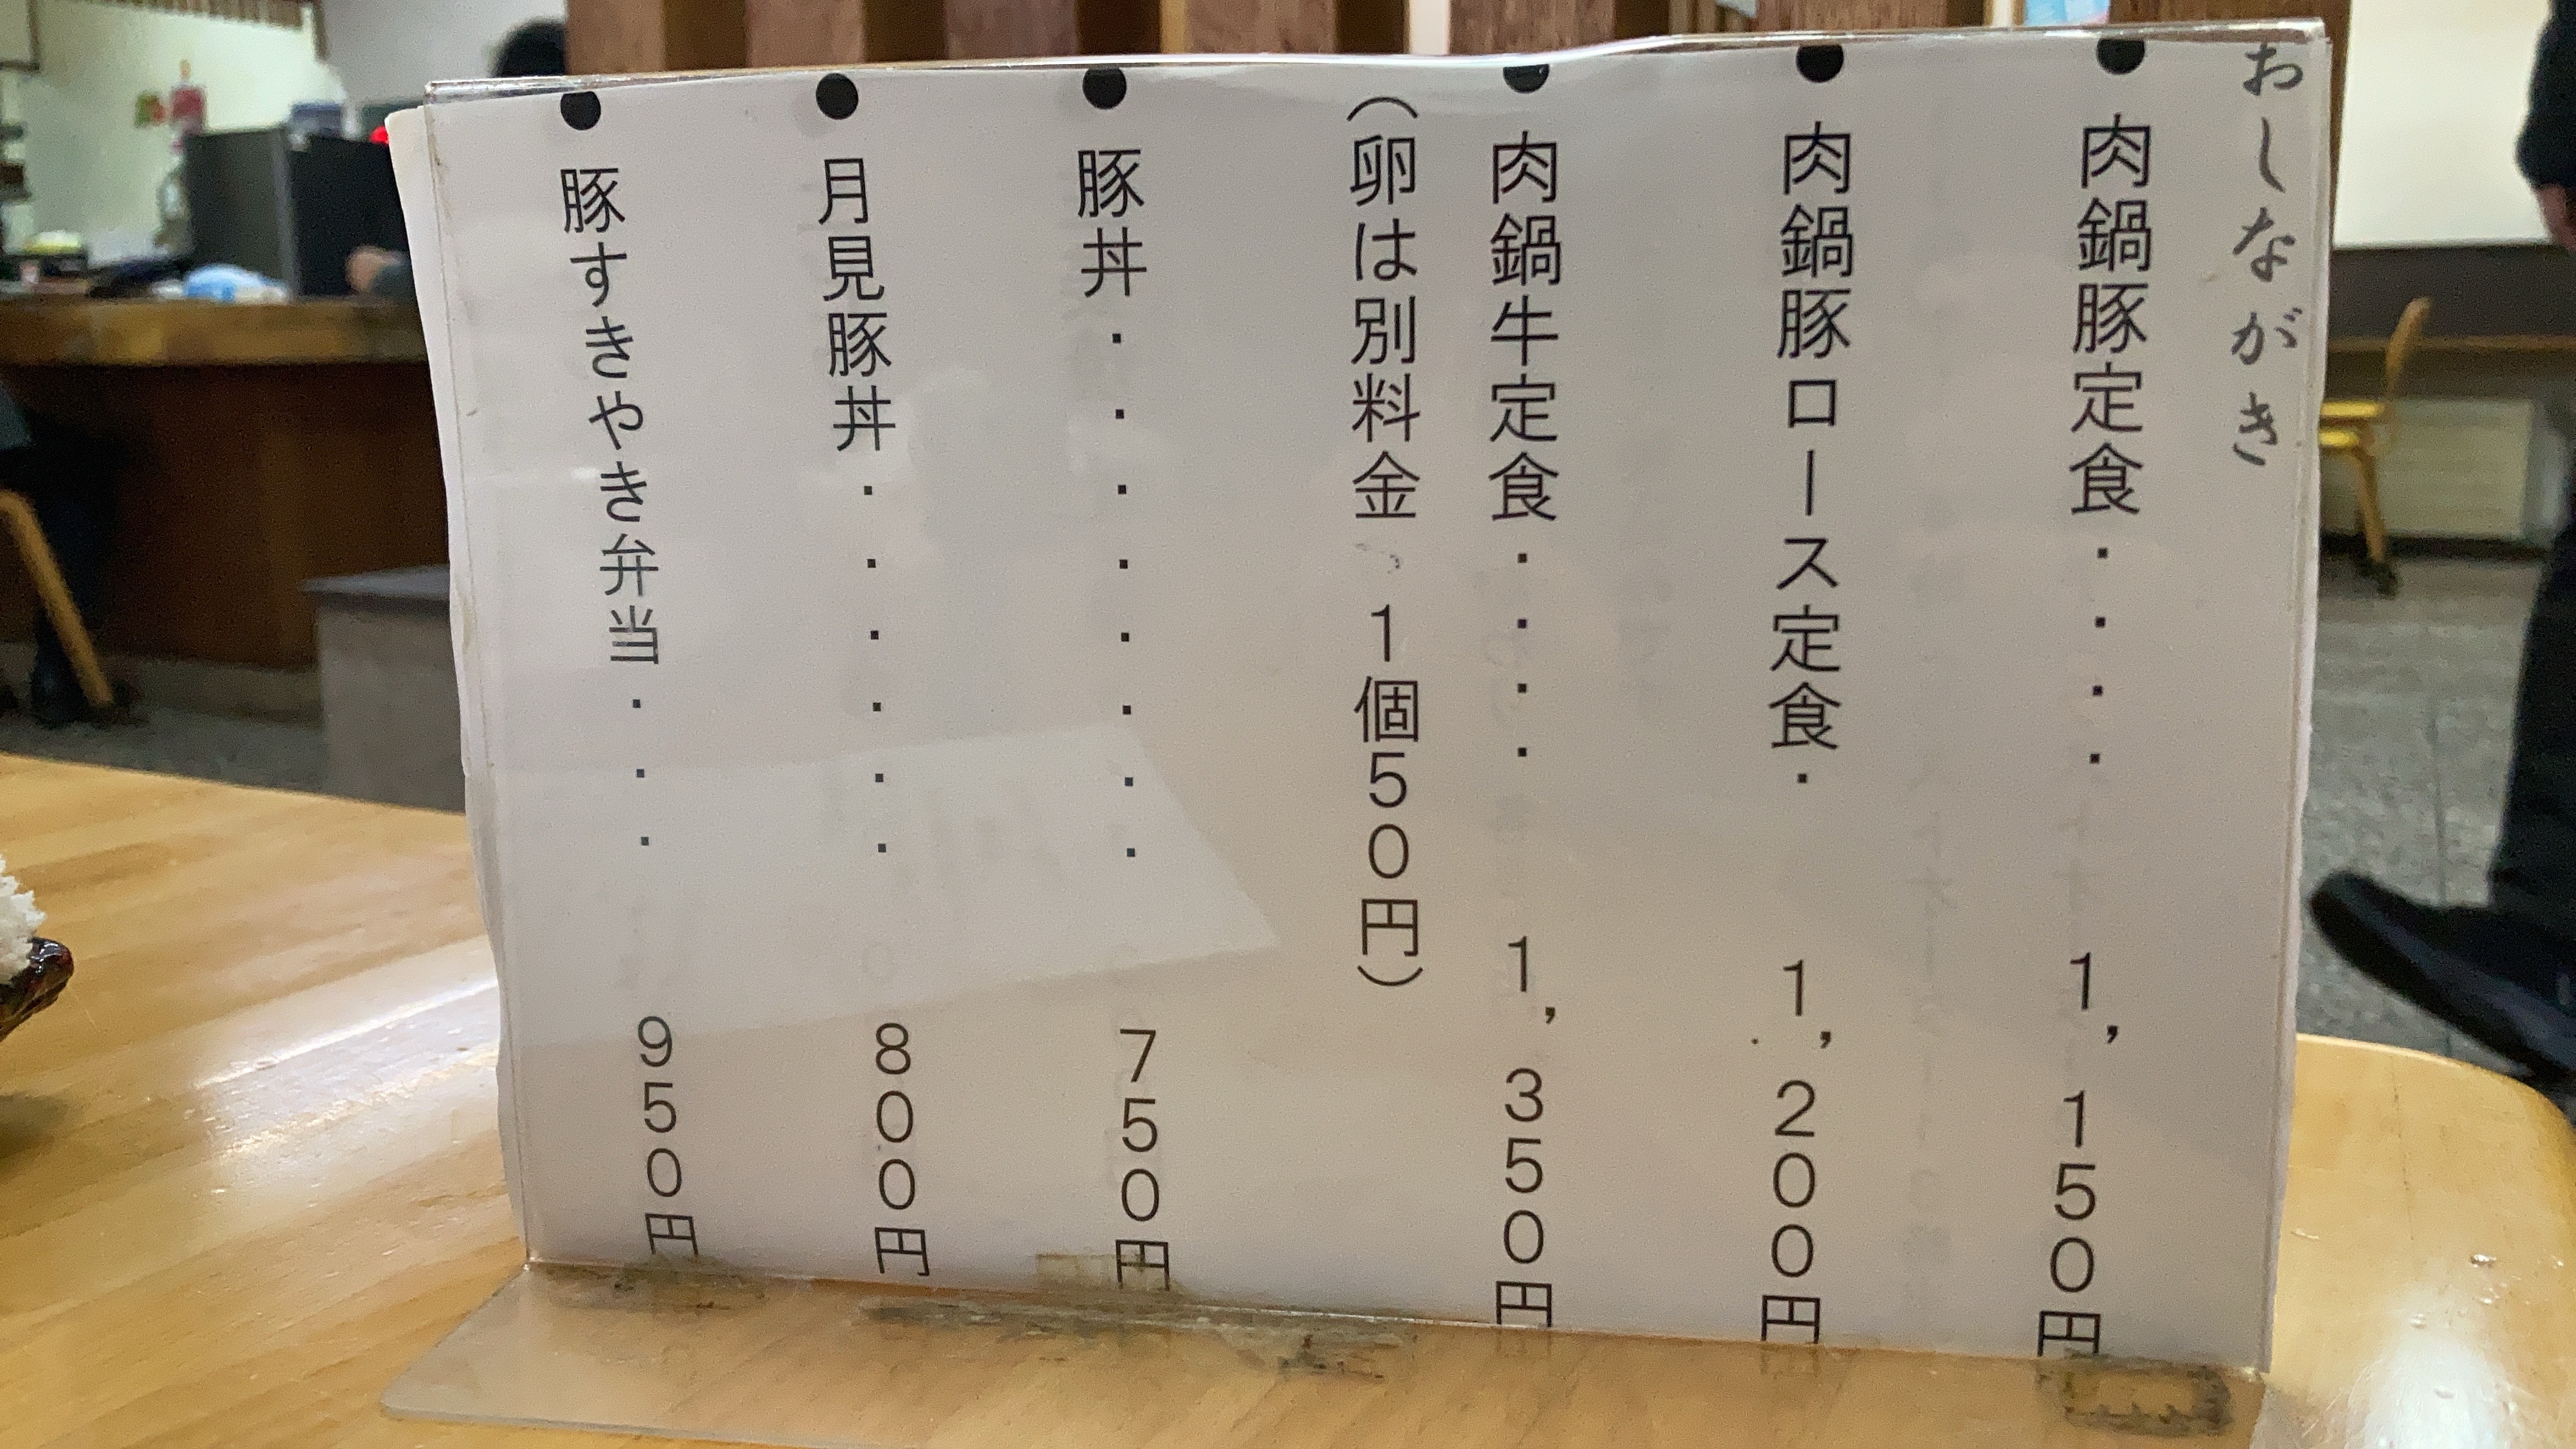 おしながき
●肉鍋豚定食・・・・　1,150円
●肉鍋豚ロース定食・　1,200円
●肉鍋牛定食・・・・　1,350円
（卵は別料金、1個50円）
●豚丼・・・・・・・・　750円
●月見豚丼・・・・・・　800円
●豚すきやき弁当・・・　950円